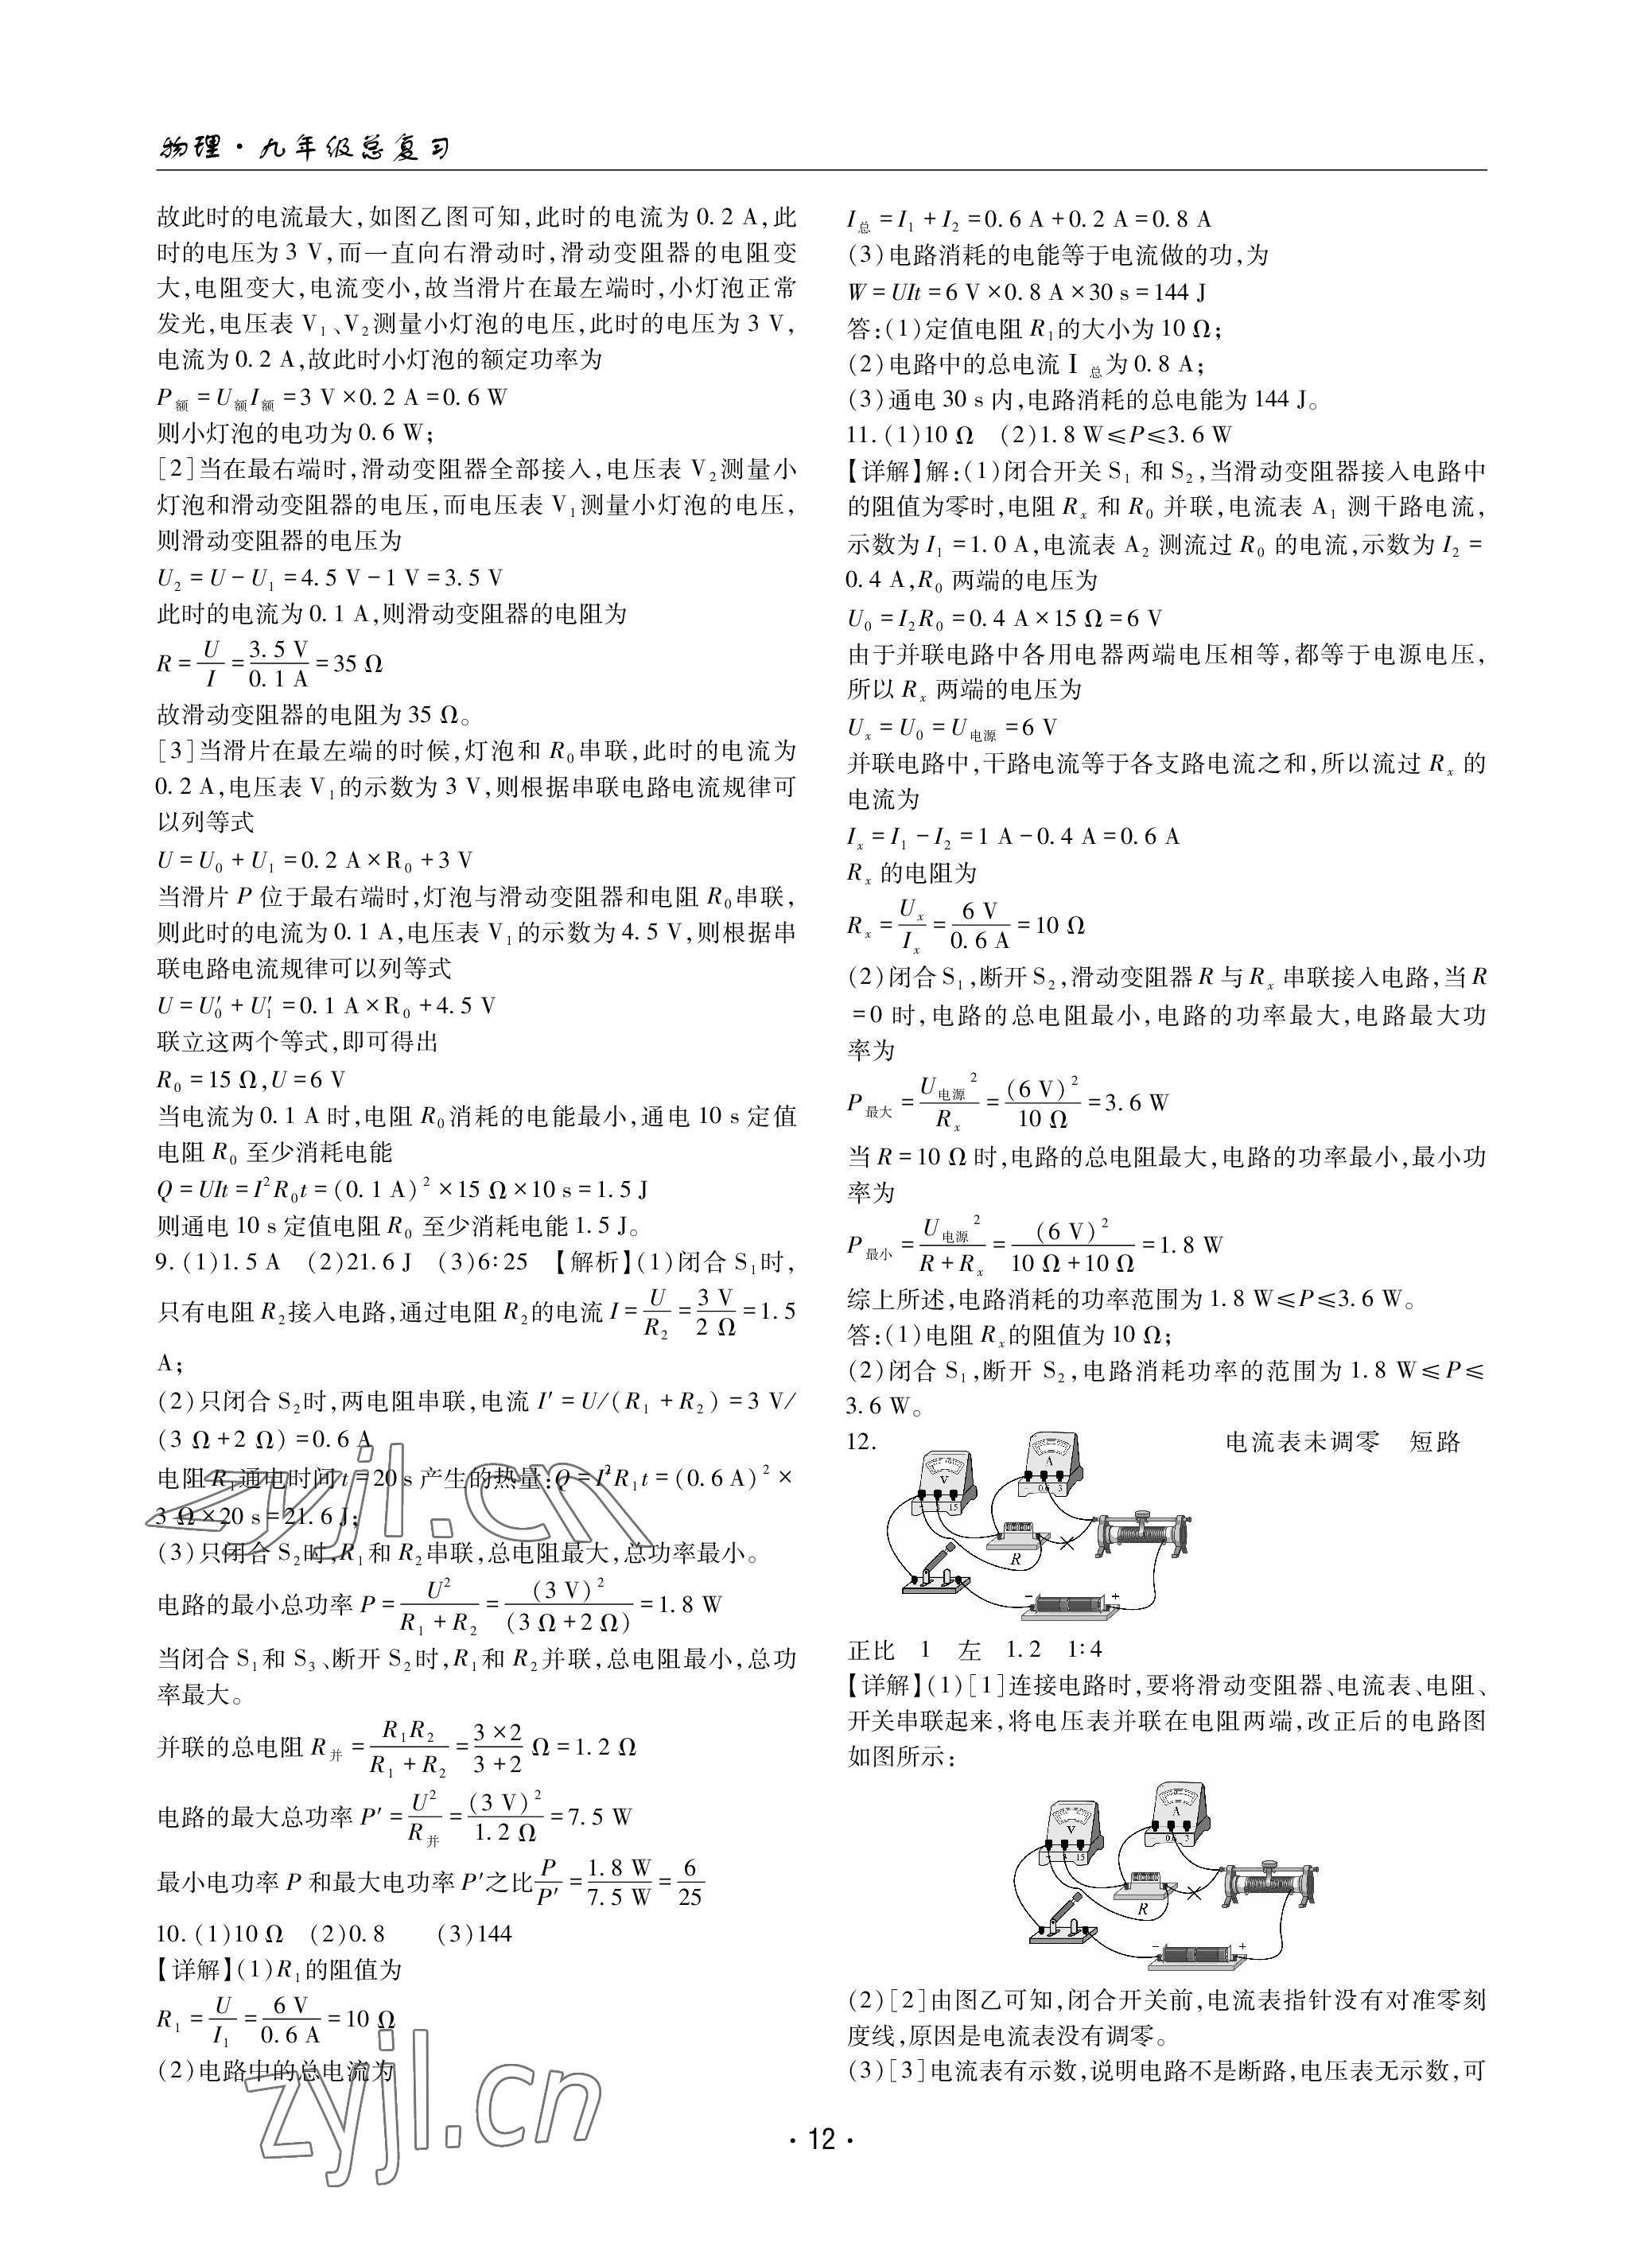 物理·九年级总复习
故此时的电流最大,如图乙图可知,此时的电流为 0.2 A,此
时的电压为 3 V,而一直向右滑动时,滑动变阻器的电阻变
大,电阻变大,电流变小,故当滑片在最左端时,小灯泡正常
发光,电压表 V₁、V₂测量小灯泡的电压,此时的电压为 3 V,
电流为 0.2 A,故此时小灯泡的额定功率为
P额 = U额I额 = 3 V × 0.2 A = 0.6 W
则小灯泡的电功为 0.6 W;
[2]当在最右端时,滑动变阻器全部接入,电压表 V₂测量小
灯泡和滑动变阻器的电压,而电压表 V₁测量小灯泡的电压,
则滑动变阻器的电压为
U₂ = U − U₁ = 4.5 V − 1 V = 3.5 V
此时的电流为 0.1 A,则滑动变阻器的电阻为
R = U/I = 3.5 V/0.1 A = 35 Ω
故滑动变阻器的电阻为 35 Ω。
[3]当滑片在最左端的时候,灯泡和 R₀串联,此时的电流为
0.2 A,电压表 V₁的示数为 3 V,则根据串联电路电流规律可
以列等式
U = U₀ + U₁ = 0.2 A × R₀ + 3 V
当滑片 P 位于最右端时,灯泡与滑动变阻器和电阻 R₀串联,
则此时的电流为 0.1 A,电压表 V₁的示数为 4.5 V,则根据串
联电路电流规律可以列等式
U = U₀′ + U₁′ = 0.1 A × R₀ + 4.5 V
联立这两个等式,即可得出
R₀ = 15 Ω,U = 6 V
当电流为 0.1 A 时,电阻 R₀消耗的电能最小,通电 10 s 定值
电阻 R₀ 至少消耗电能
Q = UIt = I²R₀t = (0.1 A)² × 15 Ω × 10 s = 1.5 J
则通电 10 s 定值电阻 R₀ 至少消耗电能 1.5 J。
9.(1)1.5 A (2)21.6 J (3)6∶25 【解析】(1)闭合 S₁时,
只有电阻 R₂接入电路,通过电阻 R₂的电流 I = U/R₂ = 3 V/2 Ω = 1.5
A;
(2)只闭合 S₂时,两电阻串联,电流 I′ = U/(R₁ + R₂) = 3 V/
(3 Ω + 2 Ω) = 0.6 A
电阻 R₁通电时间 t = 20 s 产生的热量:Q = I²R₁t = (0.6 A)² ×
3 Ω × 20 s = 21.6 J;
(3)只闭合 S₂时,R₁和 R₂串联,总电阻最大,总功率最小。
电路的最小总功率 P = U²/(R₁ + R₂) = (3 V)²/(3 Ω + 2 Ω) = 1.8 W
当闭合 S₁和 S₃、断开 S₂时,R₁和 R₂并联,总电阻最小,总功
率最大。
并联的总电阻 R并 = R₁R₂/(R₁ + R₂) = (3 × 2)/(3 + 2) Ω = 1.2 Ω
电路的最大总功率 P′ = U²/R并 = (3 V)²/1.2 Ω = 7.5 W
最小电功率 P 和最大电功率 P′之比 P/P′ = 1.8 W/7.5 W = 6/25
10.(1)10 Ω (2)0.8 (3)144
【详解】(1)R₁的阻值为
R₁ = U/I₁ = 6 V/0.6 A = 10 Ω
(2)电路中的总电流为
I总 = I₁ + I₂ = 0.6 A + 0.2 A = 0.8 A
(3)电路消耗的电能等于电流做的功,为
W = UIt = 6 V × 0.8 A × 30 s = 144 J
答:(1)定值电阻 R₁的大小为 10 Ω;
(2)电路中的总电流 I 总为 0.8 A;
(3)通电 30 s 内,电路消耗的总电能为 144 J。
11.(1)10 Ω (2)1.8 W≤P≤3.6 W
【详解】解:(1)闭合开关 S₁ 和 S₂,当滑动变阻器接入电路中
的阻值为零时,电阻 Rₓ 和 R₀ 并联,电流表 A₁ 测干路电流,
示数为 I₁ = 1.0 A,电流表 A₂ 测流过 R₀ 的电流,示数为 I₂ =
0.4 A,R₀ 两端的电压为
U₀ = I₂R₀ = 0.4 A × 15 Ω = 6 V
由于并联电路中各用电器两端电压相等,都等于电源电压,
所以 Rₓ 两端的电压为
Uₓ = U₀ = U电源 = 6 V
并联电路中,干路电流等于各支路电流之和,所以流过 Rₓ 的
电流为
Iₓ = I₁ − I₂ = 1 A − 0.4 A = 0.6 A
Rₓ 的电阻为
Rₓ = Uₓ/Iₓ = 6 V/0.6 A = 10 Ω
(2)闭合 S₁,断开 S₂,滑动变阻器 R 与 Rₓ 串联接入电路,当 R
=0 时,电路的总电阻最小,电路的功率最大,电路最大功
率为
P最大 = U电源²/Rₓ = (6 V)²/10 Ω = 3.6 W
当 R = 10 Ω 时,电路的总电阻最大,电路的功率最小,最小功
率为
P最小 = U电源²/(R + Rₓ) = (6 V)²/(10 Ω + 10 Ω) = 1.8 W
综上所述,电路消耗的功率范围为 1.8 W≤P≤3.6 W。
答:(1)电阻 Rₓ的阻值为 10 Ω;
(2)闭合 S₁,断开 S₂,电路消耗功率的范围为 1.8 W≤P≤
3.6 W。
12. 电流表未调零 短路
V − 15
A − 0.6 3
R
− +
正比 1 左 1.2 1∶4
【详解】(1)[1]连接电路时,要将滑动变阻器、电流表、电阻、
开关串联起来,将电压表并联在电阻两端,改正后的电路图
如图所示:
V − 15
A − 0.6 3
R
− +
(2)[2]由图乙可知,闭合开关前,电流表指针没有对准零刻
度线,原因是电流表没有调零。
(3)[3]电流表有示数,说明电路不是断路,电压表无示数,可
· 12 ·
zyjl.cn
zyjl.cn